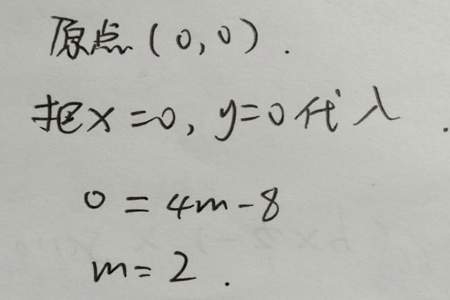 原点(0,0).
把x=0,y=0代入.
0=4m-8
m=2.